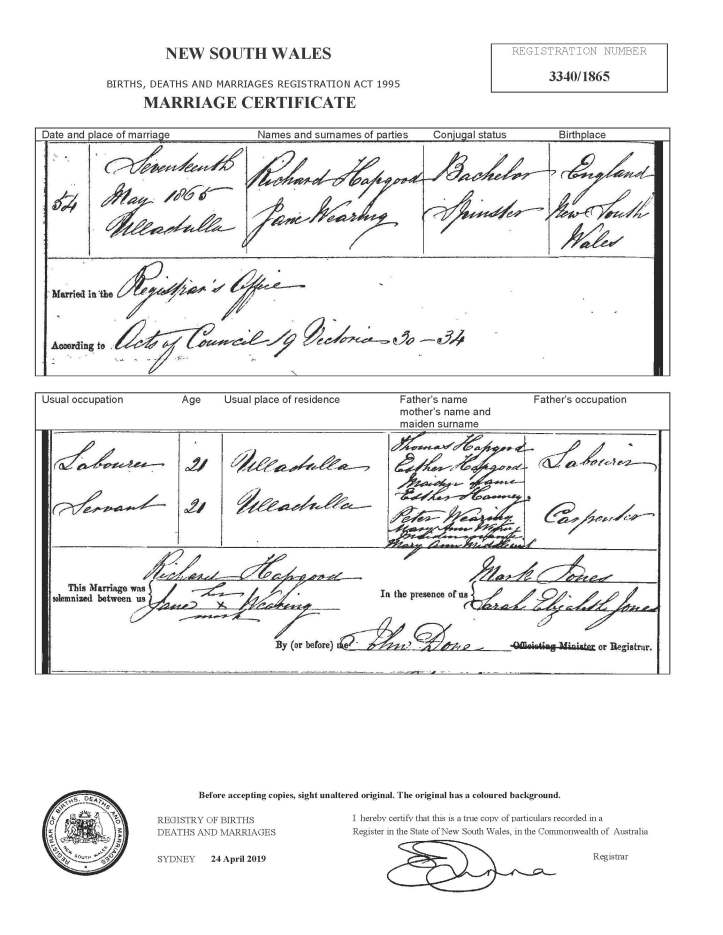 NEW SOUTH WALES
REGISTRATION NUMBER
3340/1865
BIRTHS, DEATHS AND MARRIAGES REGISTRATION ACT 1995
MARRIAGE CERTIFICATE
Date and place of marriage Names and surnames of parties Conjugal status Birthplace
54
Seventeenth
May 1865
Ulladulla
Richard Hapgood
Jane Wearing
Bachelor
Spinster
England
New South
Wales
Married in the Registrar's Office
According to Acts of Council 19 Victoria 30-34
Usual occupation Age Usual place of residence Father's name Father's occupation
mother's name and
maiden surname
Labourer 21 Ulladulla
Thomas Hapgood
Esther Hapgood
Maiden name
Esther
Labourer
Servant 21 Ulladulla
Peter Wearing
Mary Ann
Mary Ann
Carpenter
This Marriage was
solemnized between us
Richard Hapgood
Jane her x Wearing
mark
In the presence of us
Mark Jones
Sarah Elizabeth Jones
By (or before) me John Done Officiating Minister or Registrar.
Before accepting copies, sight unaltered original. The original has a coloured background.
REGISTRAR OF BIRTHS, DEATHS AND MARRIAGES
NEW SOUTH WALES
REGISTRY OF BIRTHS
DEATHS AND MARRIAGES
SYDNEY 24 April 2019
I hereby certify that this is a true copy of particulars recorded in a
Register in the State of New South Wales, in the Commonwealth of Australia
Registrar